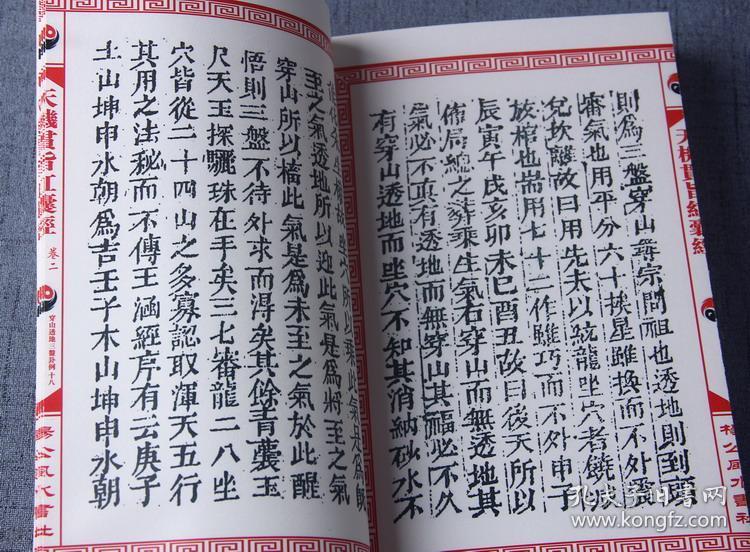 天機貫旨紅囊經
楊公風水書社
則為三盤穿山尋宗問祖也透地則到頭
審氣也用平分六十挨星雖換而不外震
兌坎離故曰用先天以統龍坐穴者饒
放棺也耑用七十二作雖巧而不外申子
辰寅午戌亥卯未巳酉丑故曰後天所以
佈局總之葬乘生氣若穿山而無透地其
氣必不真有透地而無穿山其福必不久
有穿山透地而坐穴不知其消納砂水不
坐穴所以乘此氣是為既
至之氣透地所以迎此氣是為將至之氣
穿山所以格此氣是為未至之氣於此醒
悟則三盤不待外求而得矣其餘青囊玉
尺天玉探驪珠在手矣三七審龍二八坐
穴皆從二十四山之多寡認取渾天五行
其用之法秘而不傳王涵經序有云庚子
土山坤申水朝為吉壬子木山坤申水朝
天機貫旨紅囊經
卷二
穿山透地三盤卦例十八
楊公風水書社
孔夫子旧书网
www.kongfz.com